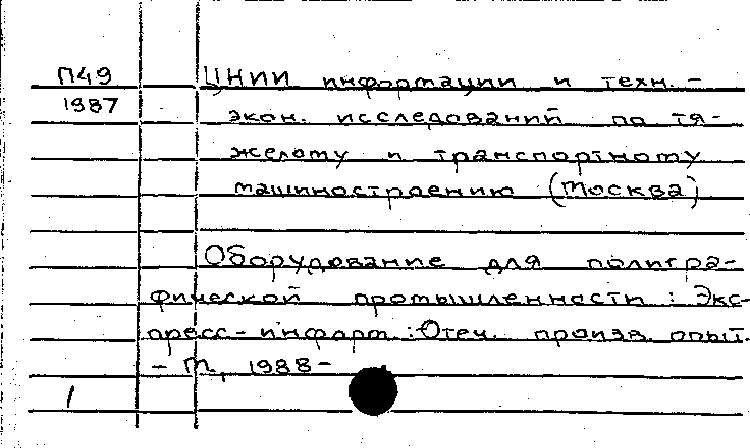 П49 ЦНИИ информации и техн.-
1987 экон. исследований по тя-
желому и транспортному
машиностроению (Москва)
Оборудование для полигра-
фической промышленности: Экс-
пресс-информ.: Отеч. произв. опыт.
- М., 1988-
1